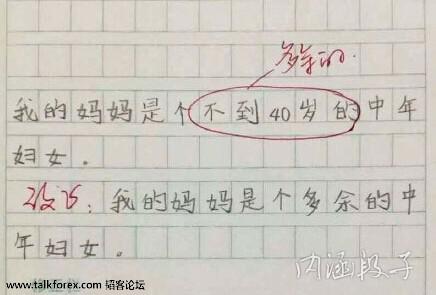 多余的.
我的妈妈是个不到40岁的中年
妇女。
改为：我的妈妈是个多余的中
年妇女。
内涵段子
www.talkforex.com 韬客论坛